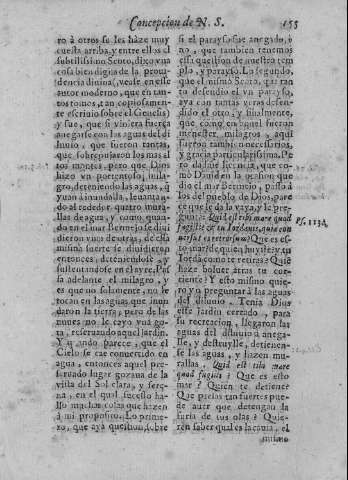 Concepcion de N. S. 155
ro à otros se les haze muy
cuesta arriba, y entre ellos el
subtilissimo Scoto, dixo vna
cosa bien digna de la prouidencia
diuina (vease en este
autor moderno, que en tantos
tomos, y tan copiosamente
escriuiò sobre el Genesis)
y fue, que si viniera fuerça
anegarse con las aguas del diluuio,
y que fueron tantas,
que sobrepujaron los mas altos
montes, pero que Dios
hizo vn portentoso milagro,
deteniendo las aguas,
y leuantando
al rededor quatro murallas
de agua, y como quando
en el mar Bermejo se diuidieron
vnas de otras, de essa
misma suerte se diuidieron
entonces, deteniendose, y
sustentandose en el ayre. Passa
adelante el milagro, y
es que no solamente no le
tocan en las aguas que inundaron
la tierra, pero de las
nuues no le cayò vna gota,
reseruando aquel jardin.
Y quando parece, que el
Cielo se cae conuertido en
agua, entonces aquel preseruado
lugar gozaua de la
vista del Sol clara, y serena,
en el qual sucesso hallo
muchas cosas que hazen
à mi proposito. Lo primero,
que aya question, sobre
si el parayso fue anegado, ò
no, que tambien tenemos
essa question de nuestro templo,
y parayso. Lo segundo,
que el mismo Scoto, que tanto
defendiò el vn parayso,
aya con tantas veras defendido
el otro, y finalmente,
que como en aquel fueron
menester milagros, aqui
fueron tambien necessarios,
y gracia particularissima. Pero
dadme licencia, que como
Dauid en la ocasion que
diò el mar Bermejo, passo à
los del pueblo de Dios, parece
que se le da la vaya, y le pregunta:
Quid est tibi mare quod
fugisti: & tu Iordanis, quia conuersus
es retrorsum? Que es esso
mar? de quien huyes? y tu
Iordan como te retiras? Quiẽ
haze boluer atras tu corriente?
Y esto mismo quiero
yo preguntar à las aguas
del diluuio. Tenia Dios
esse jardin cercado, para
su recreacion, llegaron las
aguas del diluuio à anegalle,
y destruylle, detienense
las aguas, y hazen murallas.
Quid est tibi mare
quod fugisti? Que es esso
mar? Quien te detiene?
Que pueias tan fuertes puede
auer que detengan la
furia de tus olas? Quieren
saber qual es la causa, el
mismo
Ps. 113.